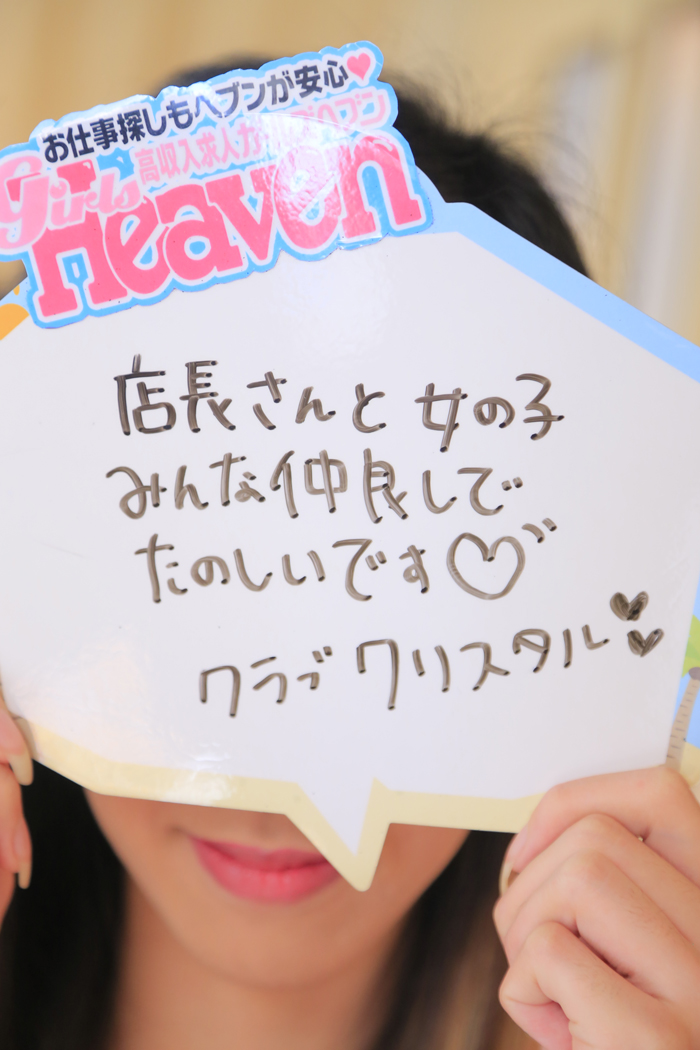 お仕事探しもヘブンが安心♥
高収入求人ガールズヘブン
Girls Heaven
店長さんと女の子
みんな仲良しで
たのしいです♡
クラブクリスタル